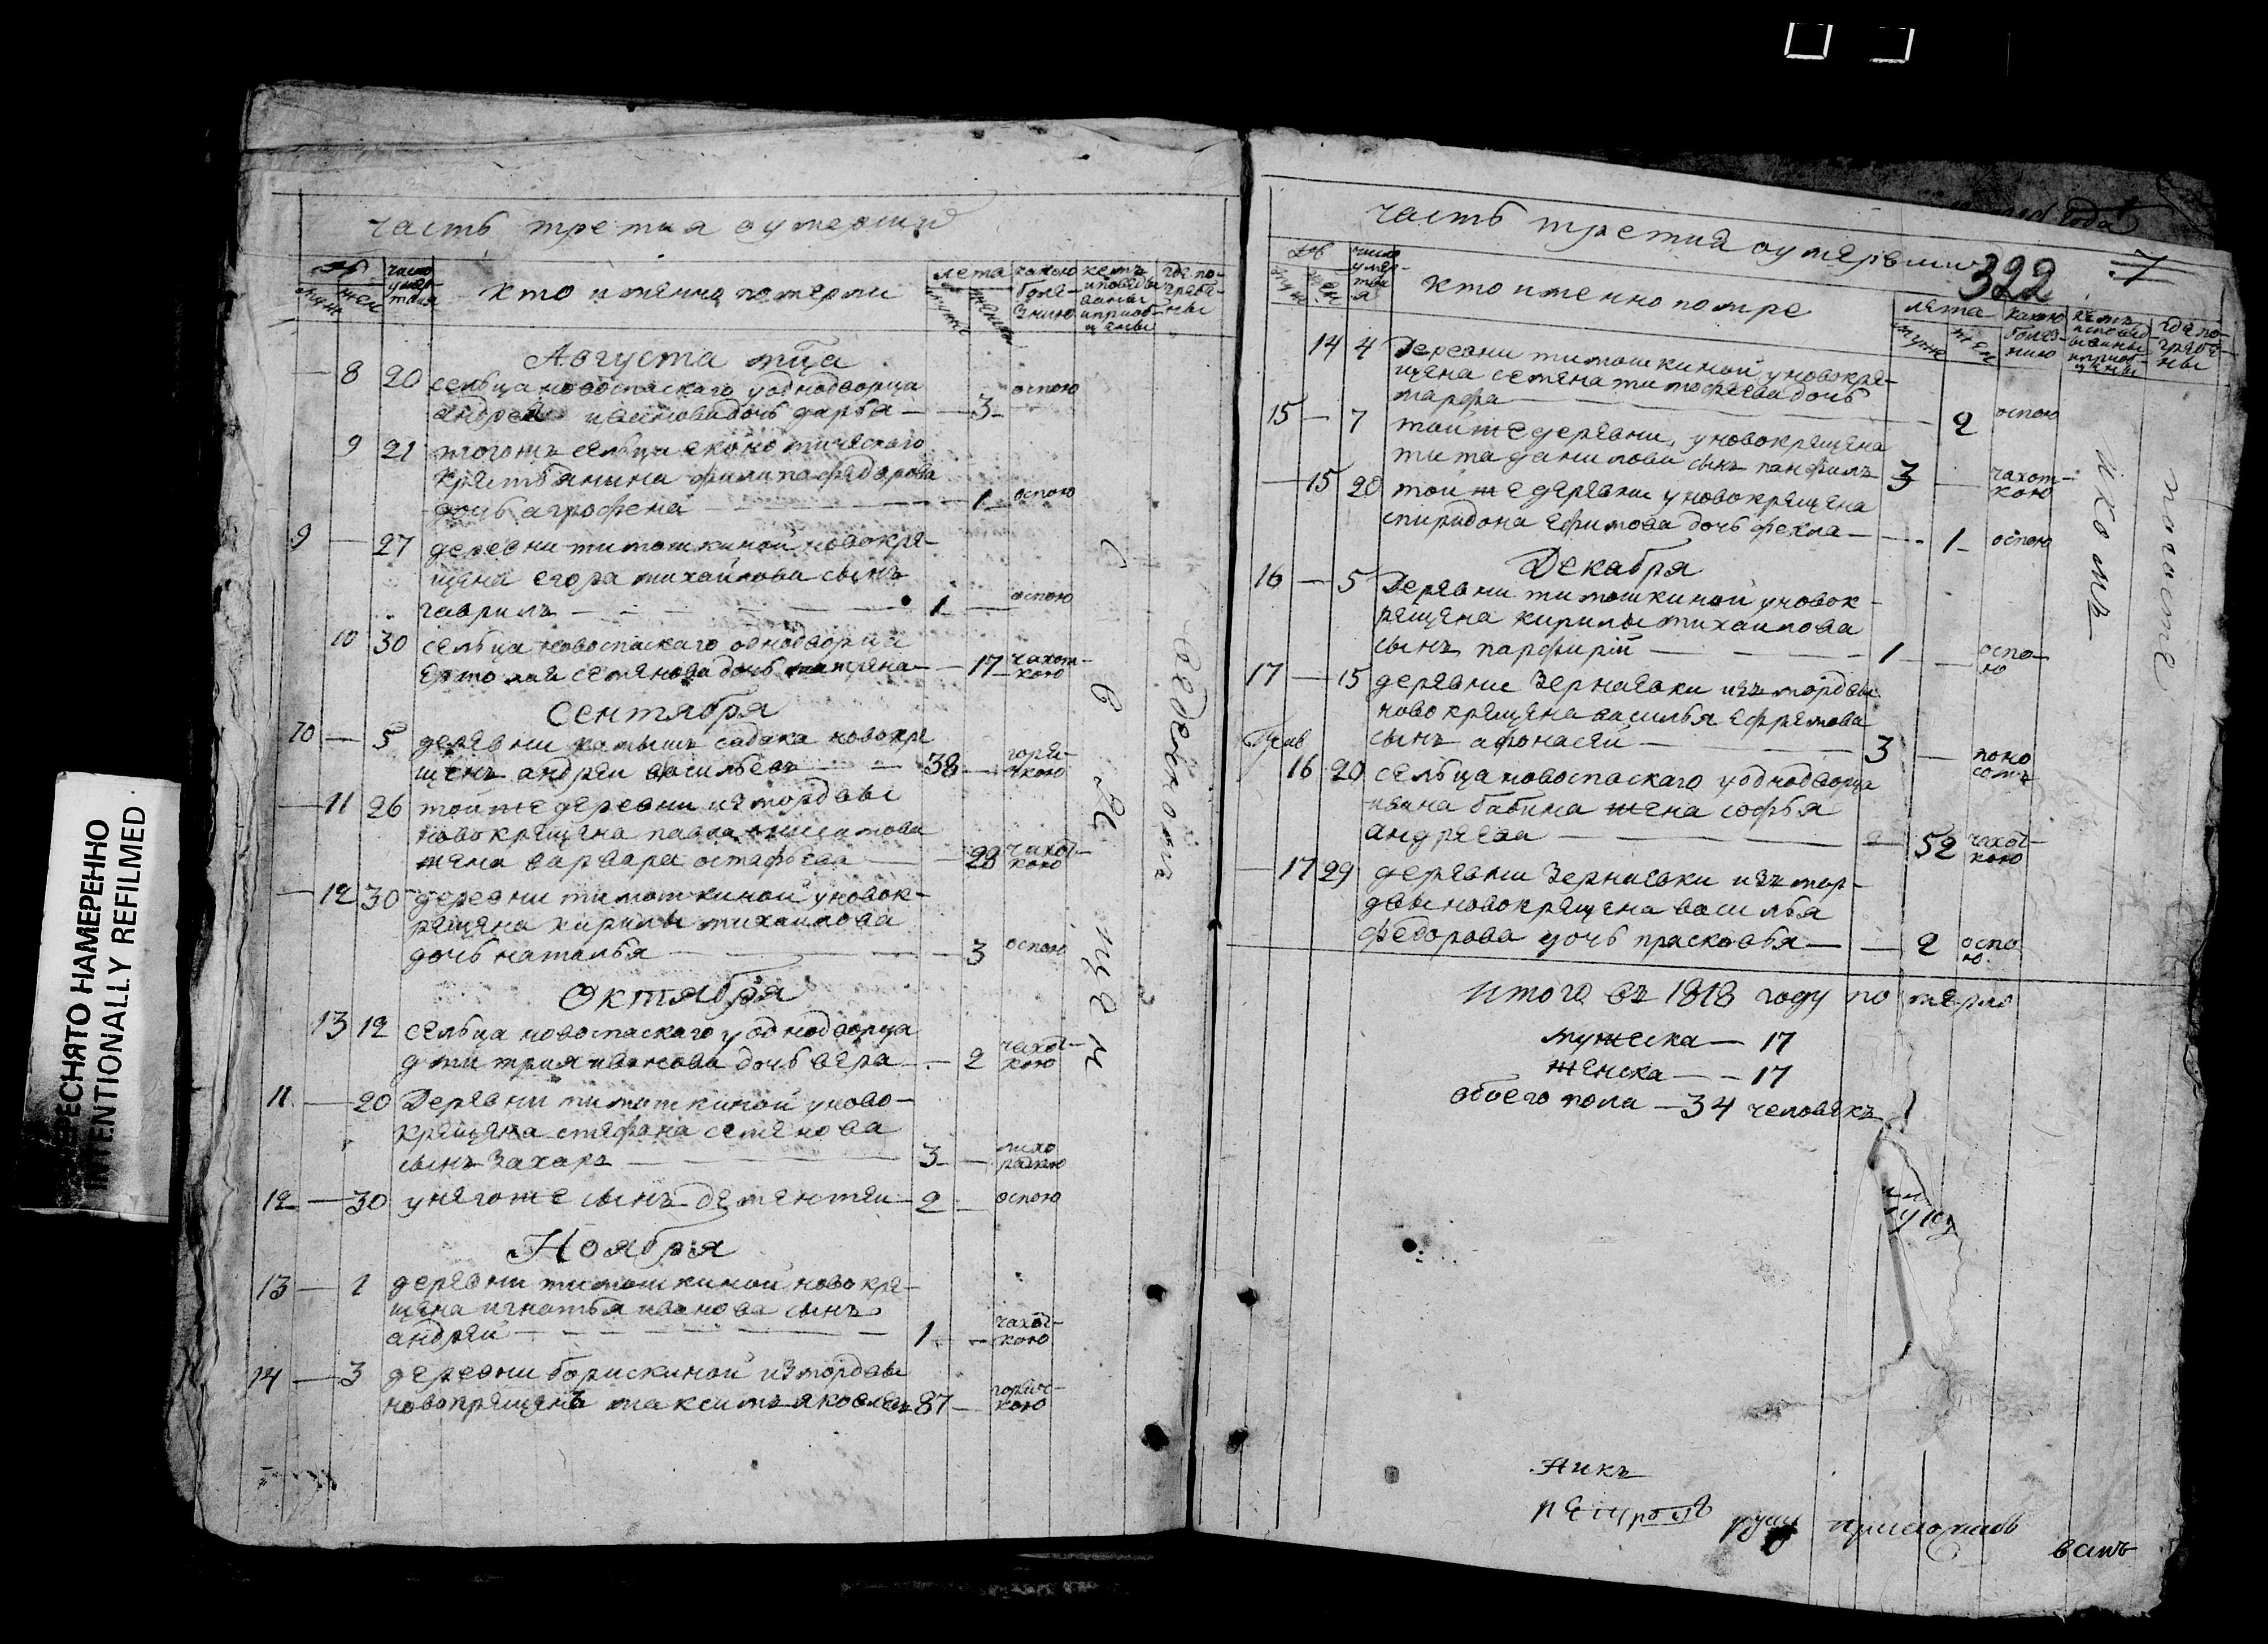 часть третия оумерших
число умер-шия
муж жен
кто именно померли
лета
мужска женска
какою боле-знию
кемъ исповеды ваны и приоб-щены
где по-гребе-ны
Августа мца
8 20 сельца новоспаскаго у однодворца
андрея иванова дочь дарья — 3 — оспою
9 21 тогожъ сельца економическаго
крестьянина филипа федорова
дочь агрофена — 1 оспою
9 — 27 деревни тимошкиной новокре-
щена егора михайлова сынъ
гаврилъ — 1 — оспою
10 30 сельца новоспаскаго однодворца
ермолая семенова дочь матрена — 17 чахот-кою
Сентября
10 — 5 деревни камышъ садака новокре
щенъ андреи васильевъ — 38 — горя-чкою
— 11 26 той же деревни из мордвы
новокрещена павла
жена варвара остафьева — 28 чахот-кою
— 12 30 деревни тимошкиной у новок-
рещена кирилы михаилова
дочь наталья — 3 оспою
Октября
13 12 сельца новоспаскаго у однодворца
дмитрия иванова дочь вера — 2 чахот-кою
11 — 20 Деревни тимошкиной у ново-
крещена стефана семенова
сынъ захаръ — 3 — лихо радкою
12 — 30 у него же сынъ дементеи — 2 — оспою
Ноября
13 — 1 деревни тимошкиной новокре-
щена игнатья иванова сынъ
андрей — 1 — чахот-кою
14 — 3 деревни борискиной из мордвы
новокрещенъ максимъ яковлевъ 87 — горяч-кою
священ
следственно
часть третия оумерших
322
7
года
муж жен
число умер-шия
кто именно помре
лета
мужс женс
какою болез-нию
кемъ исповед ываны и приоб-щены
где по-гребе-ны
14 4 Деревни тимошкиной у новокре-
щена семена тимофеева дочь
марфа — 2 оспою
15 — 7 той же деревни, у новокрещена
тита данилова сынъ панфилъ 3 — чахот-кою
— 15 20 той же деревни у новокрещена
спиридона ефимова дочь фекла — 1 — оспою
Декабря
16 — 5 Деревни тимошкиной у новок-
рещена кирилы михаилова
сынъ парфирiй — 1 — оспо-ю
17 — 15 деревни Зернаевки изъ мордвы
новокрещена василья ефремова
сынъ афонасей — 3 — поно сомъ
16 20 сельца новоспаскаго у однодворца
ивана бабина жена софья
андреева — 52 чахот-кою
— 17 29 деревни Зернаевки изъ мор-
двы новокрещена василья
федорова дочь прасковья — 2 оспо ю
Итого въ 1818 году по мерло
мужеска — 17
женска — 17
обоего пола — 34 человекъ
икомъ
погосте
Никъ
руку приложилъ
ПЕРЕСНЯТО НАМЕРЕННО
INTENTIONALLY REFILMED